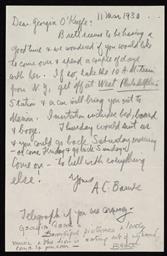 11 Mar 1930
Dear Georgia O'Keeffe:
Brett seems to be having a
good time & we wondered if you would like
to come over & spend a couple of days
with her. If so, take the 10 A.M. train
from N.Y., get off at West Philadelphia
Station & a car will bring you out to
Merion. Invitation includes bed, board
& booze.
Thursday would suit us
& you could go back Saturday morning
or come Friday & go back Sunday.
Come on — to hell with everything
else!
A.C. Barnes
Telegraph if you are coming.
Beautiful pictures & lovely
music & the devil is
Brett